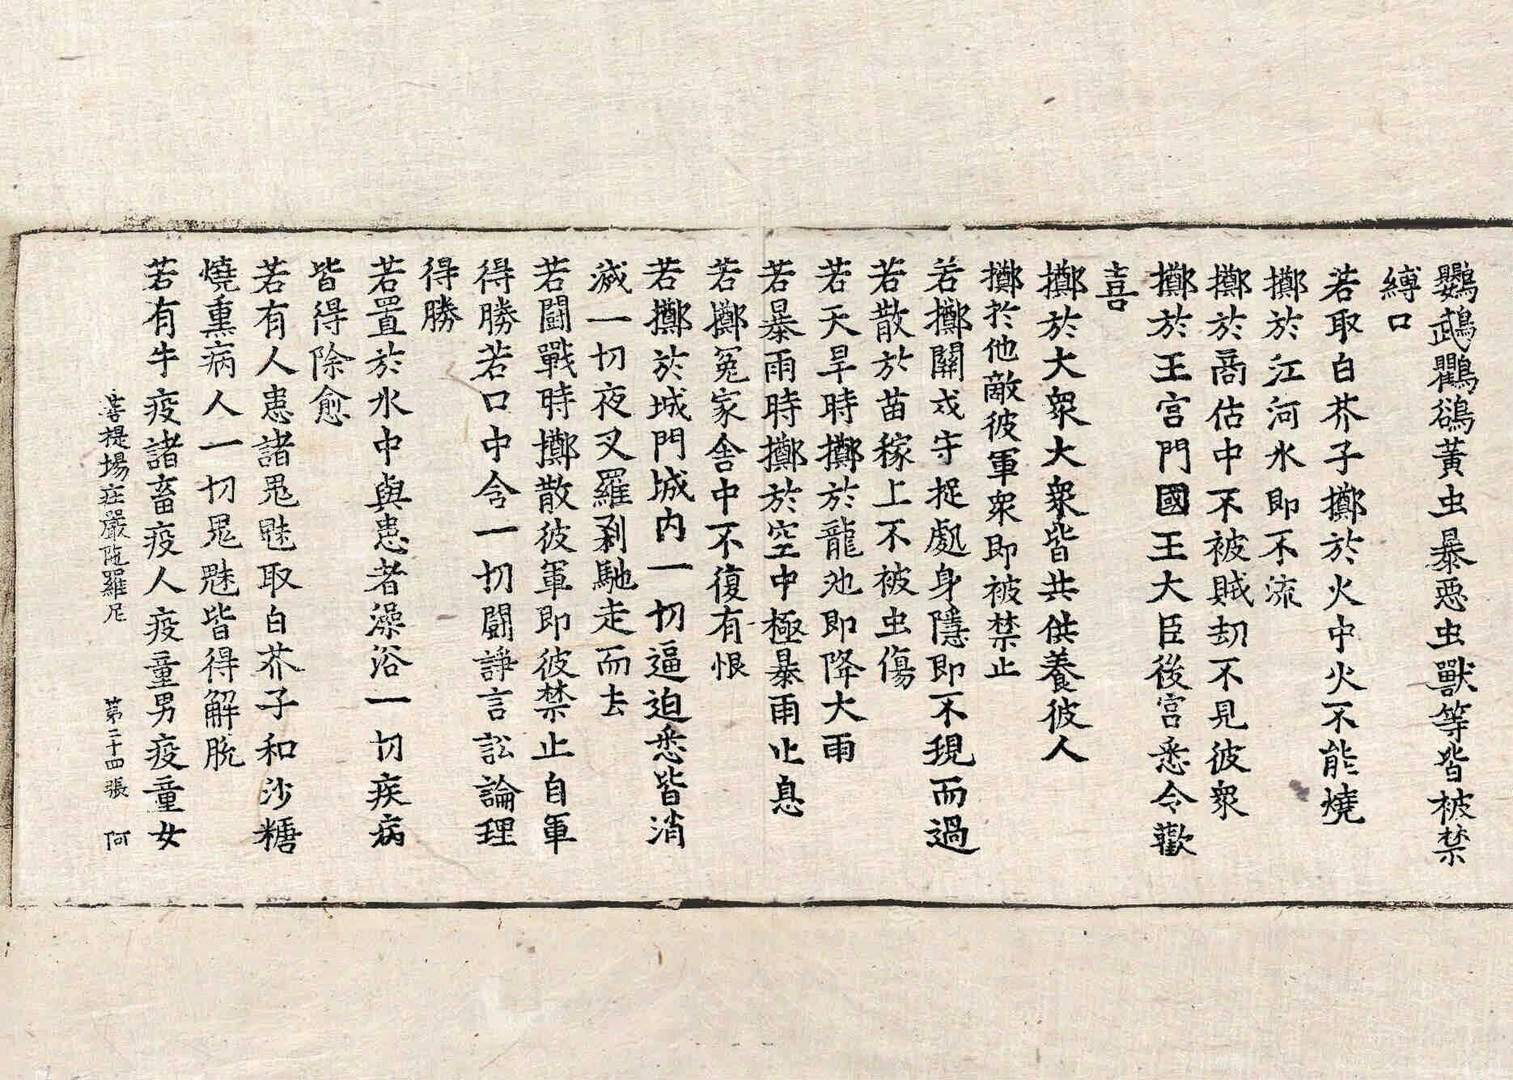 鸚鵡鸜鵒黃虫暴惡虫獸等皆被禁
縛口
若取白芥子擲於火中火不能燒
擲於江河水即不流
擲於商估中不被賊劫不見彼衆
擲於王宮門國王大臣後宮悉令歡
喜
擲於大衆大衆皆共供養彼人
擲於他敵彼軍衆即被禁止
若擲關戍守捉處身隱即不現而過
若散於苗稼上不被虫傷
若天旱時擲於龍池即降大雨
若暴雨時擲於空中極暴雨止息
若擲冤家舍中不復有恨
若擲於城門城内一切逼迫悉皆消
滅一切夜叉羅剎馳走而去
若鬪戰時擲散彼軍即彼禁止自軍
得勝若口中含一切鬪諍言訟論理
得勝
若置於水中與患者澡浴一切疾病
皆得除愈
若有人患諸鬼魅取白芥子和沙糖
燒熏病人一切鬼魅皆得解脫
若有牛疫諸畜疫人疫童男疫童女
菩提場莊嚴陁羅尼 第二十四張 阿